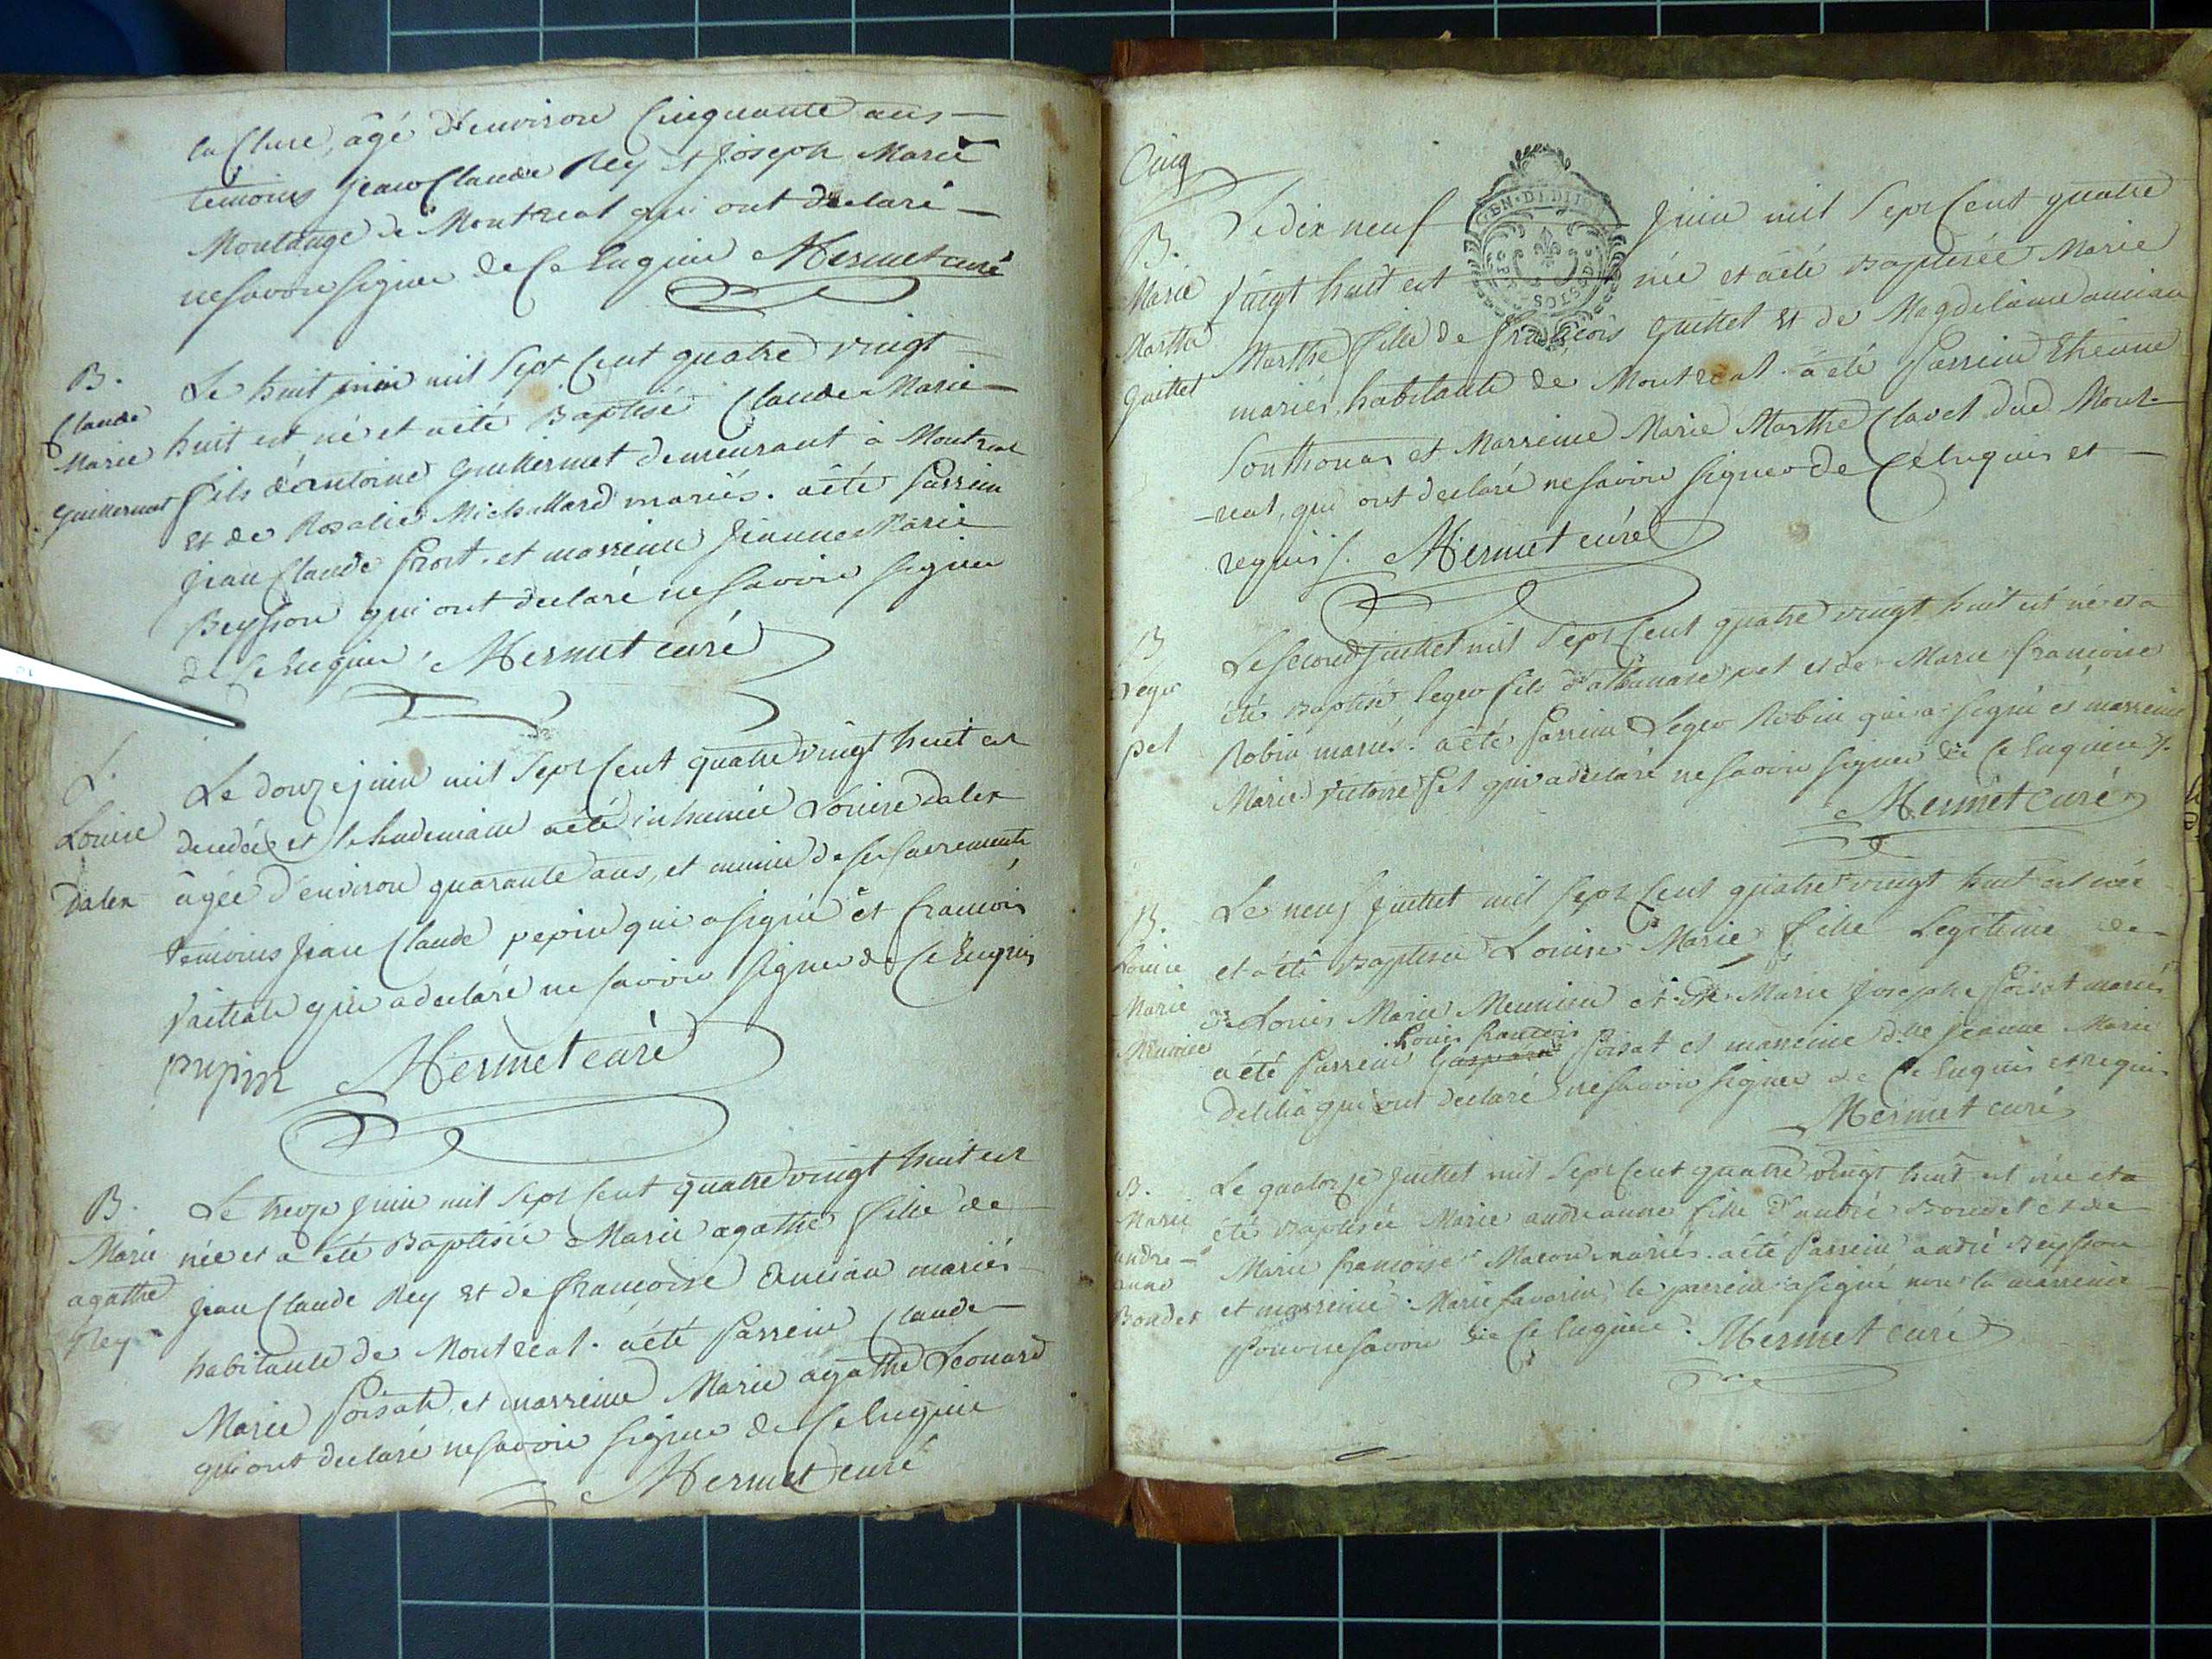 la Cluse, âgé d'environ Cinquante ans —
temoins jean Claude Rey et Joseph Marie
Montange de Montreal qui ont declaré —
ne savoir signer de ce Enquis Mermet curé
B.
Claude
Marie
Guillermet
Le huit juin mil sept Cent quatre vingt —
huit est né et a été Baptisé Claude Marie —
fils d'antoine Guillermet demeurant à Montreal
et de Rosalie Michallard mariés. a été Parrein
Jean Claude Prost. et marreine Jeanne Marie
Beysson qui ont declaré ne savoir signer
de ce Enquis. Mermet curé
Louise
Dalex
Le douze juin mil sept Cent quatre vingt huit est
decedée et le lendemain a été inhumée Louise Dalex
âgée d'environ quarante ans, et munie de ses sacrements
temoins Jean Claude pepin qui a signé et francois
qui a declaré ne savoir signer de ce Enquis
pepin Mermet curé
B.
Marie
agathe
Rey
Le treize juin mil sept Cent quatre vingt huit est
née et a été Baptisée Marie agathe fille de
Jean Claude Rey et de francoise Ancian mariés —
habitants de Montreal. a été Parrein Claude —
Marie Poisat, et marreine Marie agathe Leonard
qui ont declaré ne savoir signer de ce Enquis
Mermet curé
Cinq
GEN. DE DIJON
B.
Marie
Marthe
Guittet
Le dix neuf Juin mil sept Cent quatre
vingt huit est née et a été Baptisée Marie
Marthe fille de francois Guittet et de Magdelaine ancian
mariés, habitants de Montreal. a été Parrein Etienne
Sonthonas et Marreine Marie Marthe Clavel dud. Mont-
-real, qui ont declaré ne savoir signer de ce Enquis et —
requis. Mermet curé
B
Leger
pet
Le second Juillet mil sept Cent quatre vingt huit est né et a
été Baptisé leger fils d'athanase pet et de Marie francoise
Robin mariés. a été Parrein Leger Robin qui a signé et marreine
Marie Victoire Pet qui a declaré ne savoir signer de ce Enquis
Mermet Curé
B.
Louise
Marie
Meunier
Le neuf Juillet mil sept Cent quatre vingt huit est née
et a été Baptisée Louise Marie fille Legitime de —
Sr. Louis Marie Meunier et de Marie Josephe Poisat mariés
Louis francois
a été Parrein Gaspard Poisat et marreine dlle jeanne Marie
Delilia qui ont declaré ne savoir signer de ce Enquis et requis
Mermet curé
B.
Marie
andre-
anne
Bondet
Le quatorze Juillet mil sept Cent quatre vingt huit est née et a
été Baptisée Marie andreanne fille d'andré Bondet et de
Marie francoise Macon mariés. a été Parrein andré Beysson
et marreine. Marie favarin, le parrein a signé non la marreine
pour ne savoir de ce Enquise. Mermet curé